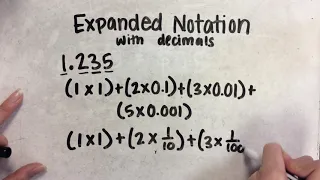 Expanded Notation
with decimals
1.235
(1 x 1)+(2x0.1)+(3x0.01)+
(5x0.001)
(1 x 1)+(2 x 1/10)+(3x 1/100